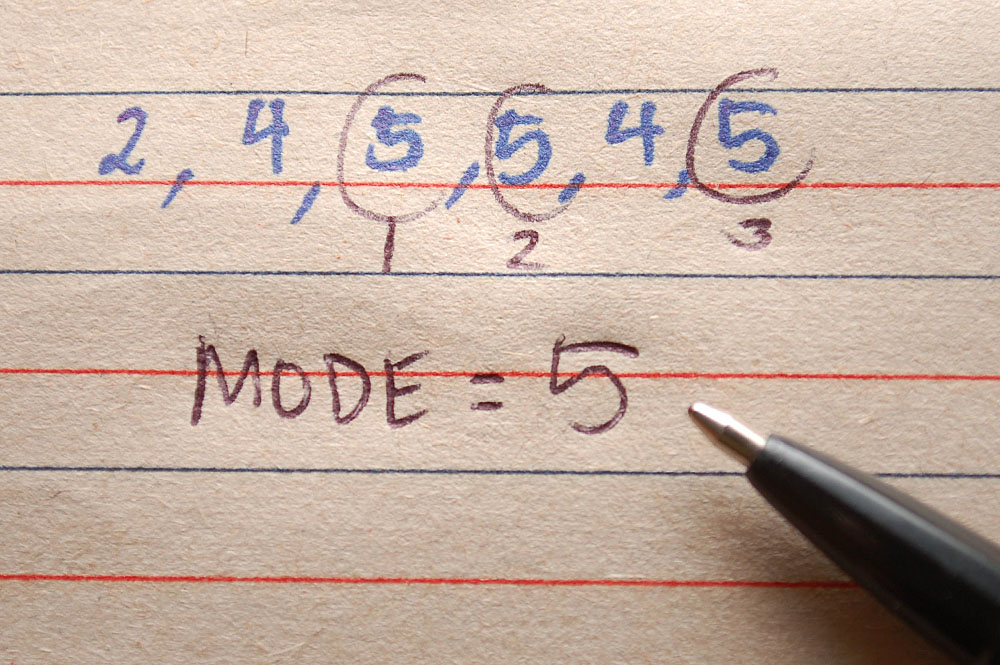 2, 4, 5, 5, 4, 5
1 2 3
MODE = 5